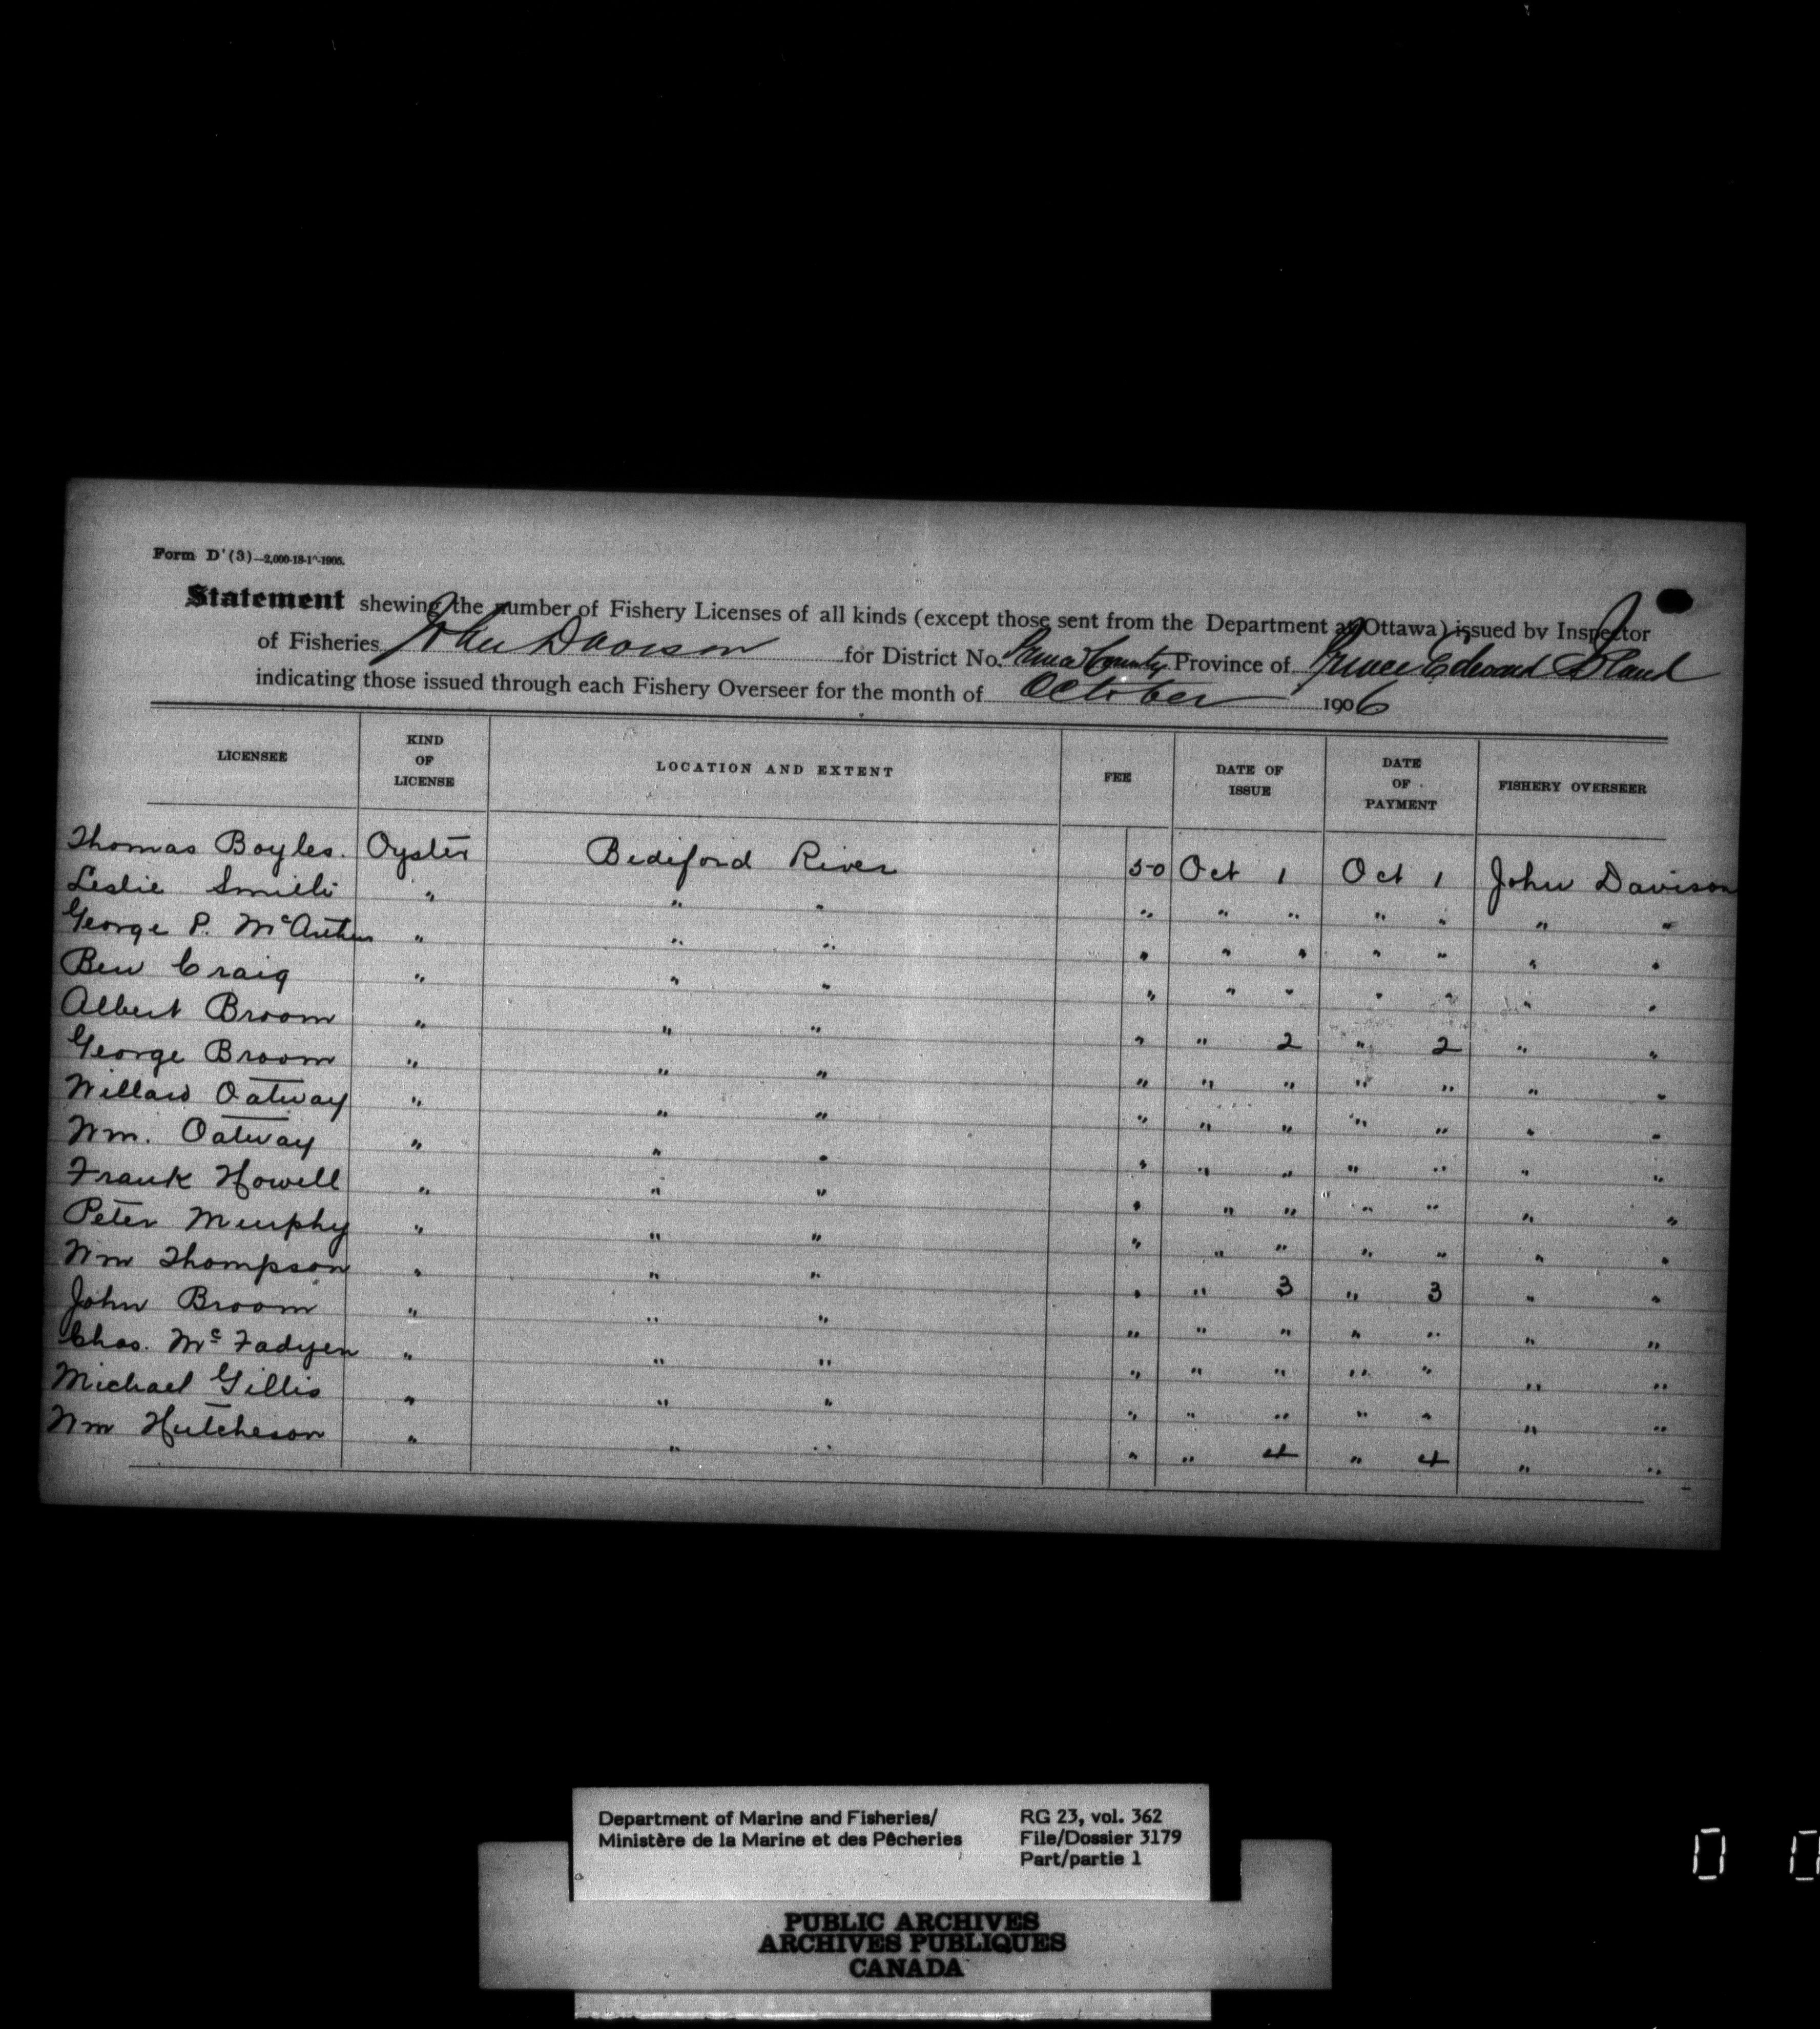 Form D'(3)—2,000-18-1^-1905.
Statement shewing the number of Fishery Licenses of all kinds (except those sent from the Department at Ottawa) issued by Inspector
of Fisheries John Davison for District No. Prince County Province of Prince Edward Island
indicating those issued through each Fishery Overseer for the month of October 1906
LICENSEE KIND OF LICENSE LOCATION AND EXTENT FEE DATE OF ISSUE DATE OF PAYMENT FISHERY OVERSEER
Thomas Boyles. Oyster Bideford River 50 Oct 1 Oct 1 John Davison
Leslie " " " " " " " " " "
George P. McArthur " " " " " " " " " "
Ben Craig " " " " " " " " " "
Albert Broom " " " " " 2 " 2 " "
George Broom " " " " " " " " " "
Willard Oatway " " " " " " " " " "
Wm. Oatway " " " " " " " " " "
Frank Howell " " " " " " " " " "
Peter Murphy " " " " " " " " " "
Wm Thompson " " " " " 3 " 3 " "
John Broom " " " " " " " " " "
Chas. Mc Fadyen " " " " " " " " " "
Michael Gillis " " " " " " " " " "
Wm Hutcheson " " " " " 4 " 4 " "
Department of Marine and Fisheries/ RG 23, vol. 362
Ministère de la Marine et des Pêcheries File/Dossier 3179
Part/partie 1
PUBLIC ARCHIVES
ARCHIVES PUBLIQUES
CANADA